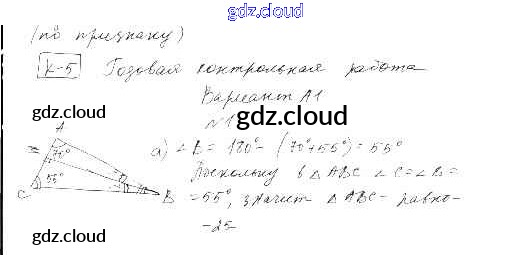 gdz.cloud
(по признаку)
К-5 Годовая контрольная работа
Вариант А1
gdz.cloud gdz.cloud
№1
A
70°
55°
C
B
а) ∠B = 180° - (70°+55°) = 55°
Поскольку в △ABC ∠C = ∠B =
= 55°, значит △ABC - равно-
-25
gdz.cloud
gdz.cloud